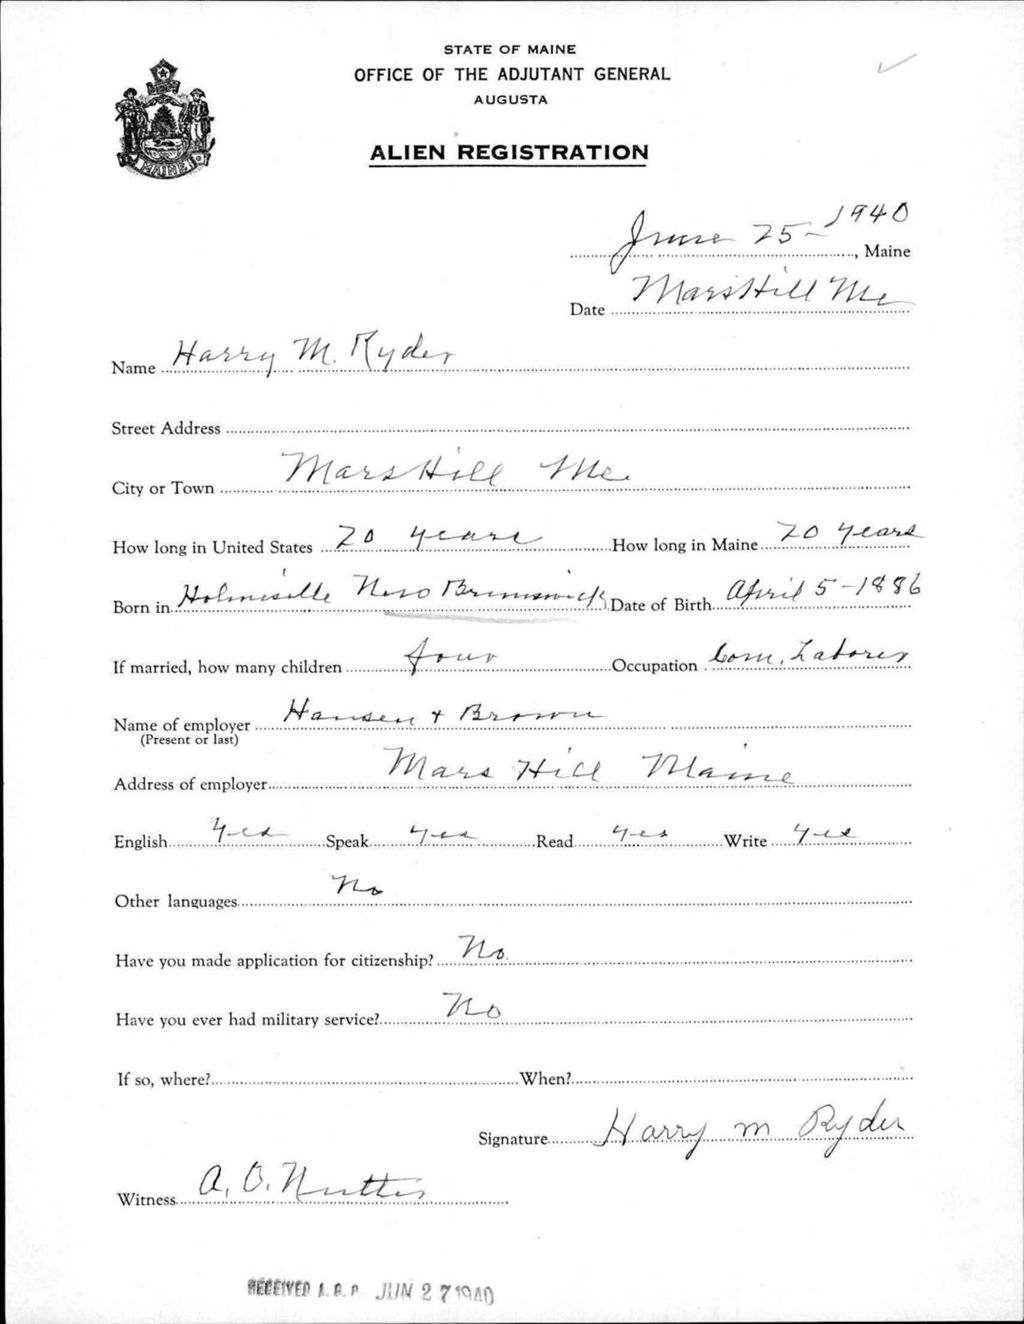 STATE OF MAINE
OFFICE OF THE ADJUTANT GENERAL
AUGUSTA
ALIEN REGISTRATION
MAINE
June 25-1940, Maine
Date Mars Hill Me
Name Harry M. Ryder
Street Address
City or Town Mars Hill Me.
How long in United States 20 years How long in Maine 20 years
Born in Holmisille New Brunswick Date of Birth April 5-1886
If married, how many children four Occupation Com. Laborer
Name of employer Hansen + Brown
(Present or last)
Address of employer Mars Hill Maine
English yes Speak yes Read yes Write yes
Other languages No
Have you made application for citizenship? No.
Have you ever had military service? No
If so, where? When?
Signature Harry M Ryder
Witness A. O. Nutter
RECEIVED A.G.O. JUN 27 1940